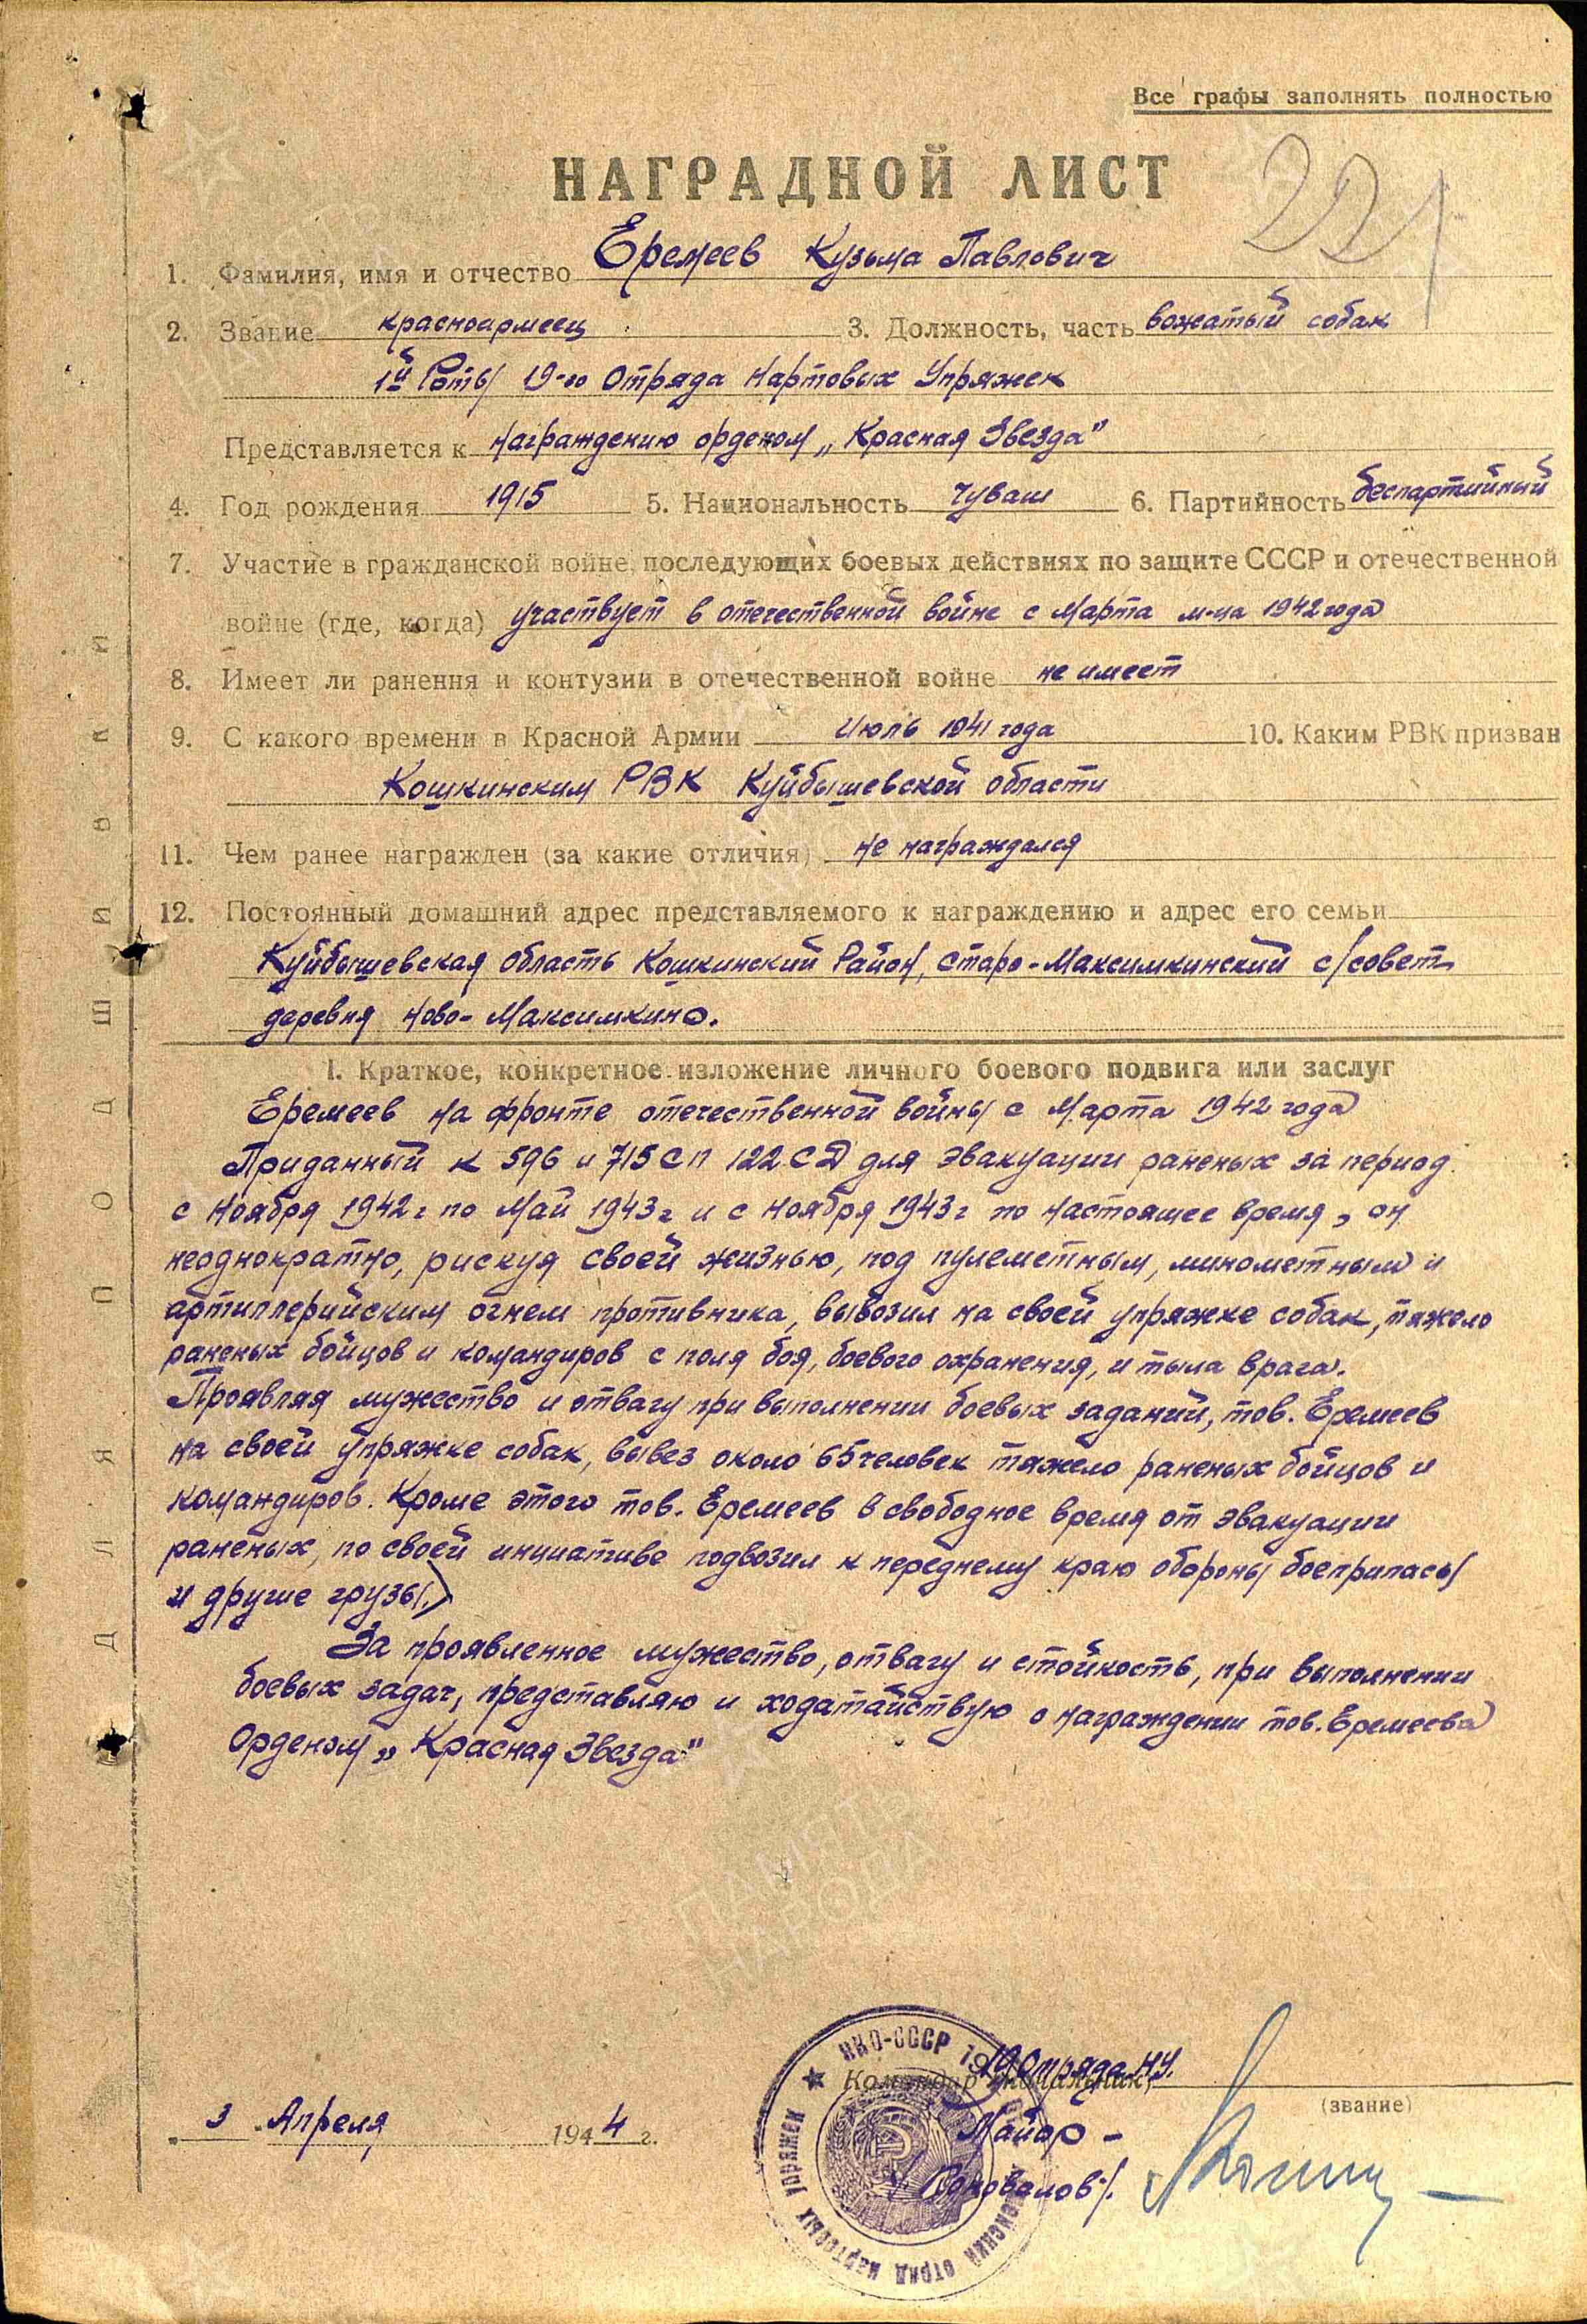 Все графы заполнять полностью
НАГРАДНОЙ ЛИСТ
221
1. Фамилия, имя и отчество Еремеев Кузьма Павлович
2. Звание красноармеец 3. Должность, часть вожатый собак
1й Роты 19-го Отряда Нартовых Упряжек
Представляется к награждению орденом „Красная Звезда"
4. Год рождения 1915 5. Национальность Чуваш 6. Партийность беспартийный
7. Участие в гражданской войне, последующих боевых действиях по защите СССР и отечественной
войне (где, когда) участвует в отечественной войне с Марта м-ца 1942 года
8. Имеет ли ранения и контузии в отечественной войне не имеет
9. С какого времени в Красной Армии Июль 1941 года 10. Каким РВК призван
Кошкинским РВК Куйбышевской области
11. Чем ранее награжден (за какие отличия) не награждался
12. Постоянный домашний адрес представляемого к награждению и адрес его семьи
Куйбышевская область Кошкинский Район, Старо-Максимкинский с/совет
деревня Ново-Максимкино.
I. Краткое, конкретное изложение личного боевого подвига или заслуг
Еремеев на фронте отечественной войны с Марта 1942 года
Приданный к 596 и 715 СП 122 СД для эвакуации раненых за период
с Ноября 1942г по Май 1943г и с Ноября 1943г по настоящее время, он
неоднократно, рискуя своей жизнью, под пулеметным, минометным и
артиллерийским огнем противника, вывозил на своей упряжке собак, тяжело
раненых бойцов и командиров с поля боя, боевого охранения, и тыла врага.
Проявляя мужество и отвагу при выполнении боевых заданий, тов. Еремеев
на своей упряжке собак, вывез около 65 человек тяжело раненых бойцов и
командиров. Кроме этого тов. Еремеев в свободное время от эвакуации
раненых, по своей инициативе подвозил к переднему краю обороны боеприпасы
и другие грузы.
За проявленное мужество, отвагу и стойкость, при выполнении
боевых задач, представляю и ходатайствую о награждении тов. Еремеева
Орденом „Красная Звезда"
Командир (начальник) 19 Отряда Н.У.
(звание)
Майор -
/Коновалов/.
3 Апреля 1944 г.
НКО-СССР 19 отряд нартовых упряжек
ДЛЯ ПОДШИВКИ
ПАМЯТЬ
НАРОДА